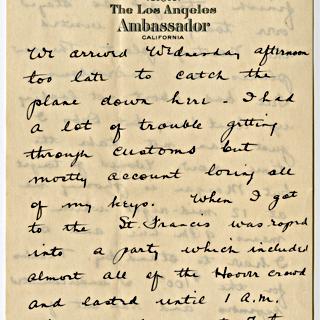 The Los Angeles
Ambassador
CALIFORNIA
We arrived Wednesday afternoon
too late to catch the
plane down here - I had
a lot of trouble getting
through customs but
mostly account losing all
of my keys. When I got
to the St. Francis was roped
into a party which included
almost all of the Hoover crowd
and lasted until 1 A.M.